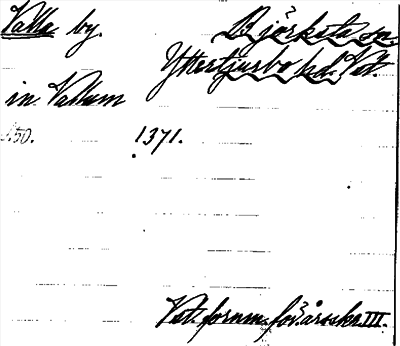 Valla by. Björksta sn.
Yttertjurbo hd. Vst.
in Vallum
50. 1371.
Vst. fornm. för. årsskr. III.